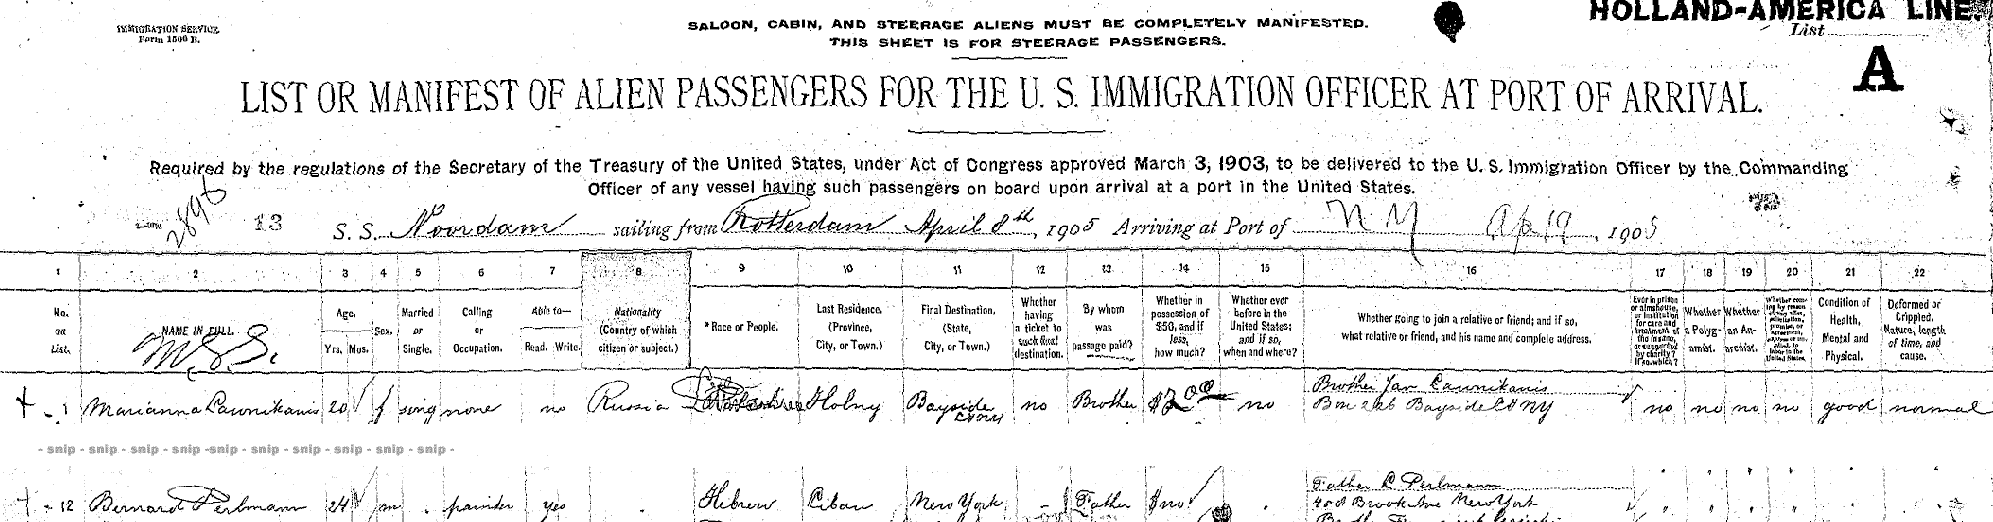 IMMIGRATION SERVICE
Form 1500 B.
SALOON, CABIN, AND STEERAGE ALIENS MUST BE COMPLETELY MANIFESTED.
THIS SHEET IS FOR STEERAGE PASSENGERS.
HOLLAND-AMERICA LINE.
List
A
LIST OR MANIFEST OF ALIEN PASSENGERS FOR THE U. S. IMMIGRATION OFFICER AT PORT OF ARRIVAL.
Required by the regulations of the Secretary of the Treasury of the United States, under Act of Congress approved March 3, 1903, to be delivered to the U. S. Immigration Officer by the Commanding
Officer of any vessel having such passengers on board upon arrival at a port in the United States.
2896
13 S. S. Noordam sailing from Rotterdam April 8th, 1905 Arriving at Port of N Y Ap 19, 1905
1 2 3 4 5 6 7 8 9 10 11 12 13 14 15 16 17 18 19 20 21 22
No. on List.
NAME IN FULL
Age. Yrs. Mos.
Sex.
Married or Single.
Calling or Occupation.
Able to— Read. Write.
Nationality (Country of which citizen or subject.)
*Race or People.
Last Residence. (Province, City, or Town.)
Final Destination. (State, City, or Town.)
Whether having a ticket to such final destination.
By whom was passage paid?
Whether in possession of $50, and if less, how much?
Whether ever before in the United States; and if so, when and where?
Whether going to join a relative or friend; and if so, what relative or friend, and his name and complete address.
Ever in prison or almshouse, or institution for care and treatment of the insane, or supported by charity? If so, which?
Whether a Polygamist.
Whether an Anarchist.
Condition of Health, Mental and Physical.
Deformed or Crippled. Nature, length of time, and cause.
1 Marianna 20 f sing none no Russia Holny Bayside no Brother no Brother Jan
Box 226 Bayside NY no no no no good normal
- snip - snip - snip - snip -snip - snip - snip - snip - snip - snip - snip -
12 Bernard Perlmann 24 m painter yes Hebrew New York Father Father Perlmann
New York